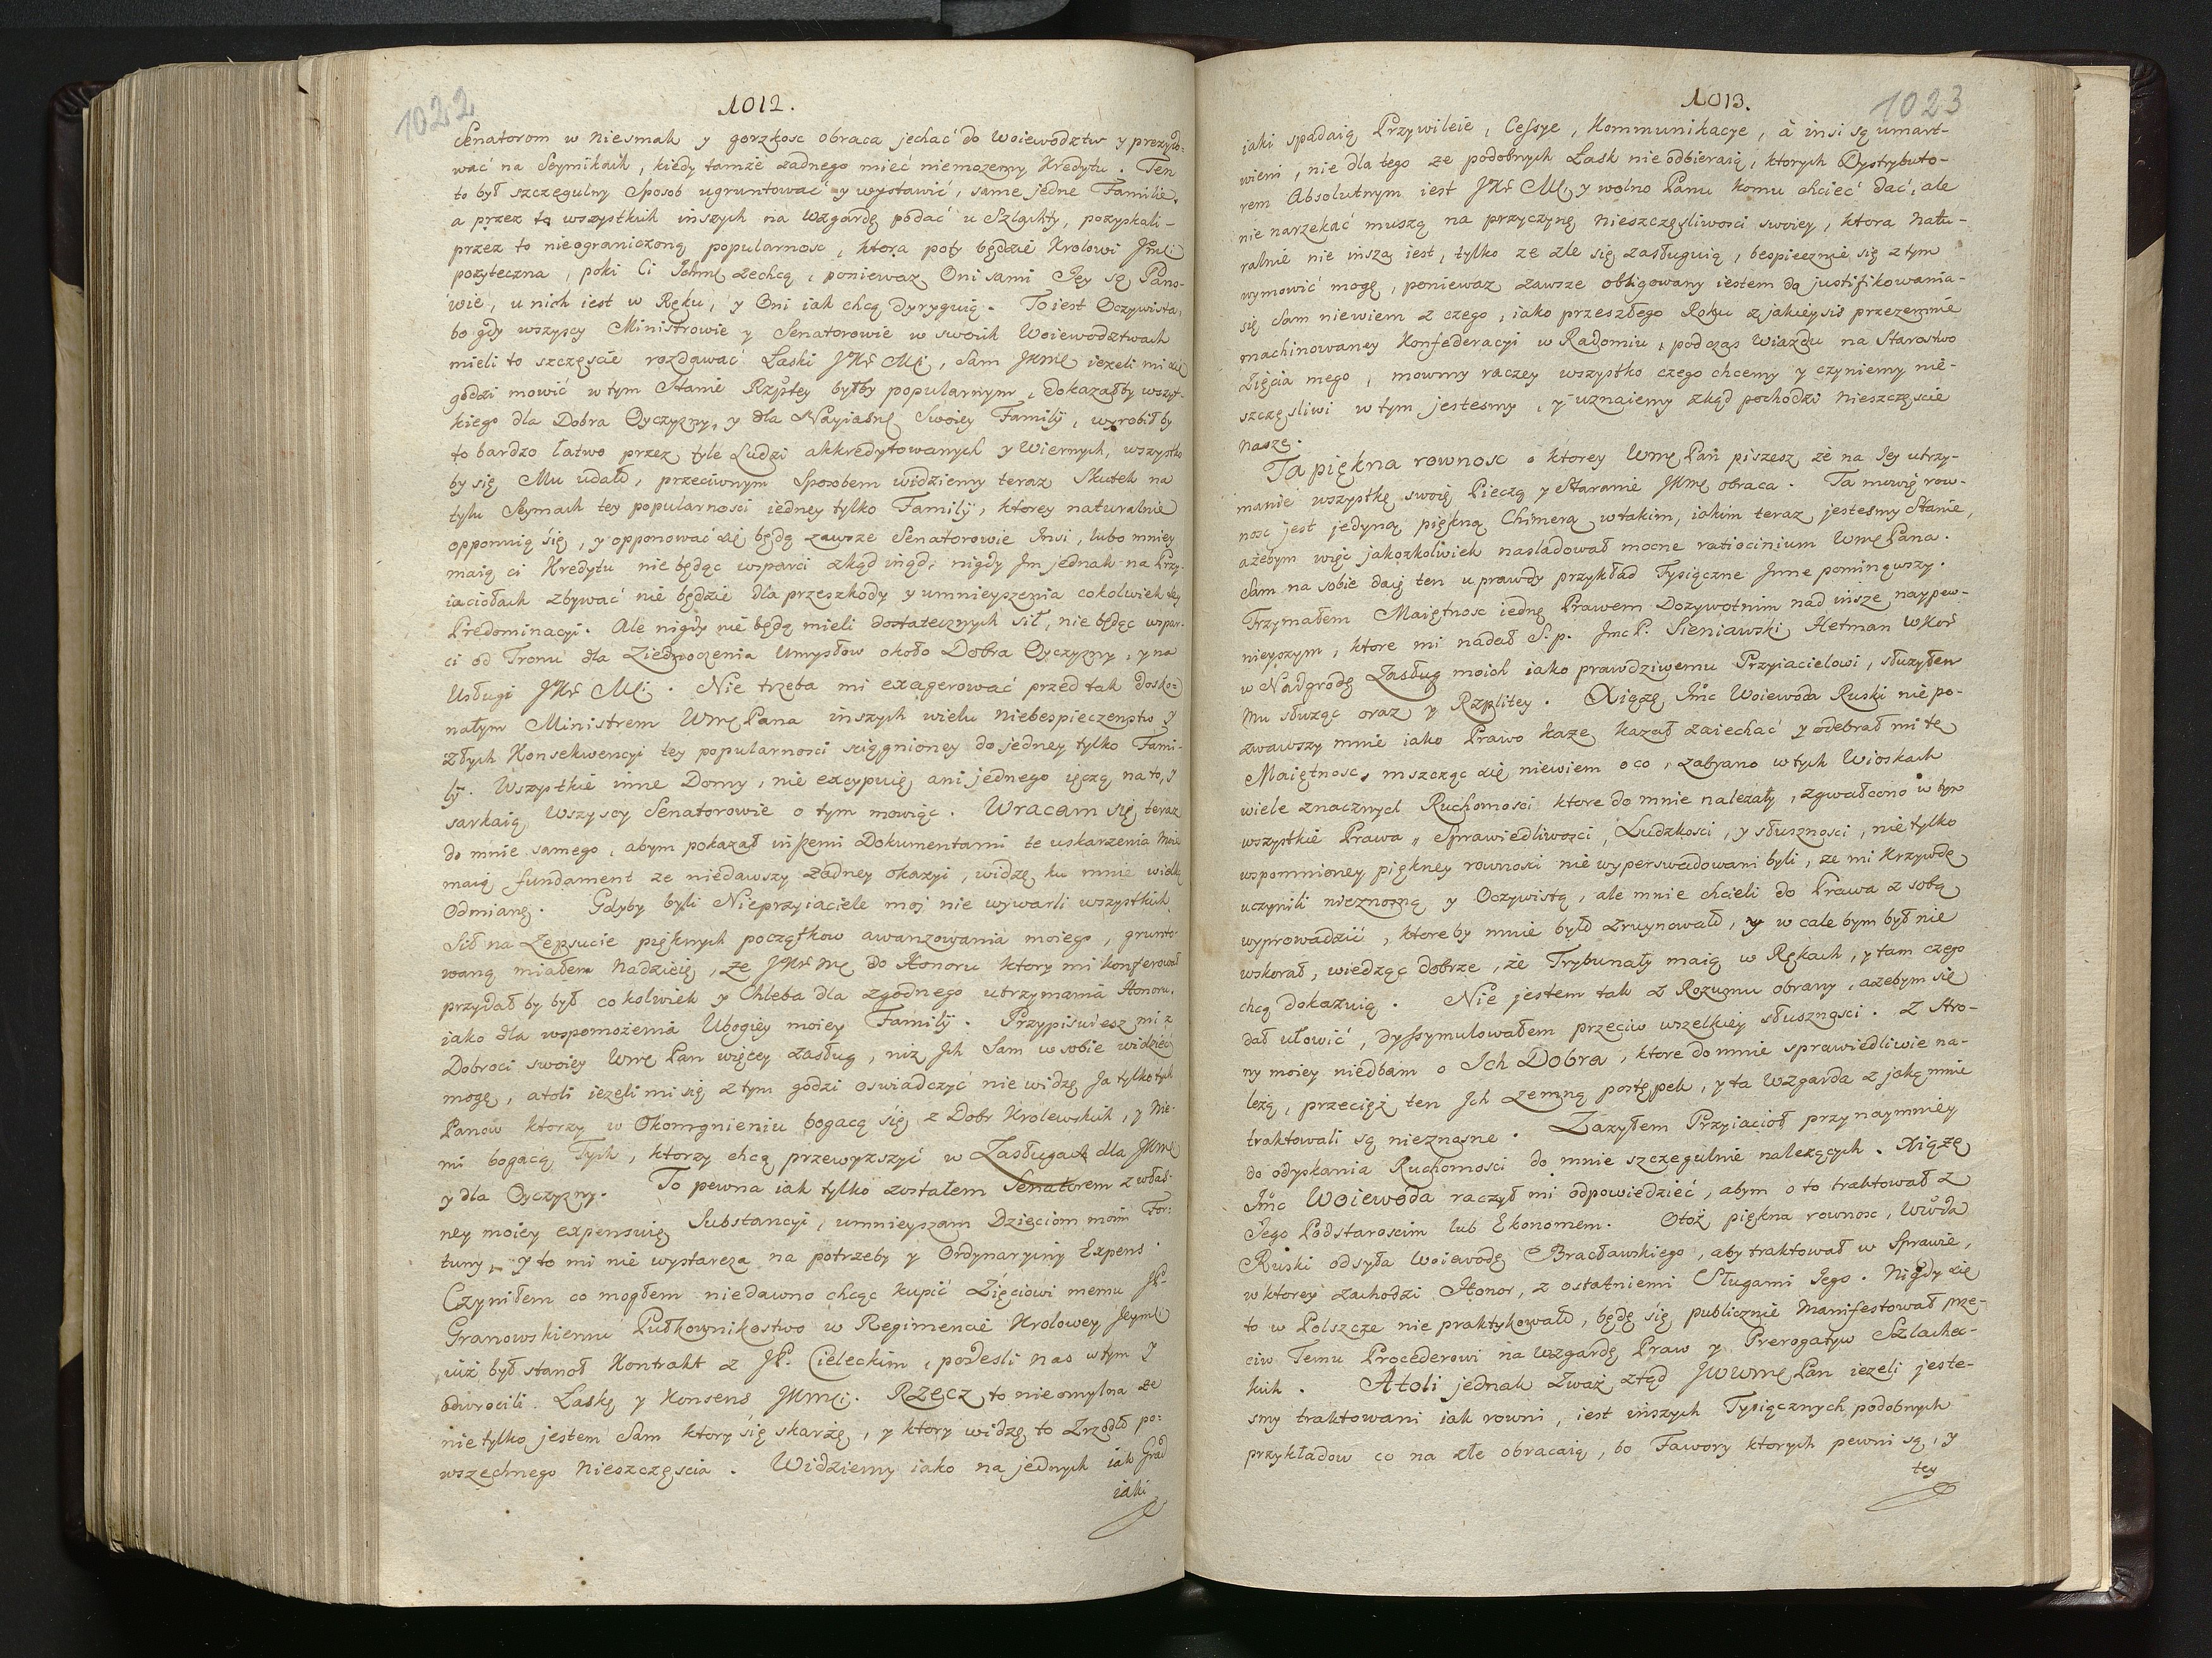 1022
1012.
Senatorom w Niesmak y gorzkosc obraca jechać do Woiewodztw y prezydo-
wać na Seymikach, kiedy tamże żadnego mieć niemozemy Kredytu. Ten
to był szczegulny Sposob ugruntować y wystawić, same jedne Familie,
a przez tę wszystkich inszych na Wzgardę podać u Szlachty, pozyskali-
przez to nieograniczoną popularnosc, ktora poty będzie Krolowi Jmći
pozyteczna, poki Ci Ichmę zechcą, poniewaz Oni sami Jey są Pano-
wie, u nich iest w Ręku, y Oni iak chcą dyryguią. To iest Oczywista,
bo gdy wszyscy Ministrowie y Senatorowie w swoich Woiewodztwach
mieli to szczęscie rozdawać Łaski JKr Mći, Sam JKmę iezeli mi się
godzi mowić w tym Stanie Rzpltey byłby popularnym, dokazałby wszyt-
kiego dla Dobra Oyczyzny, y dla Nayiasnę Swoiey Familij, wyrobiłby
to bardzo łatwo przez tyle Ludzi akkredytowanych y Wiernych, wszystko
by się Mu udało, przeciwnym Sposobem widziemy teraz Skutek na
tylu Seymach tey popularnosci iedney tylko Familij, ktorey naturalnie
opponuią się, y opponować się będą zawsze Senatorowie Insi, lubo mniey
maią ci Kredytu nie będąc wsparci zkąd inąd, nigdy Im jednak na Przy-
iaciołach zbywać nie będzie dla przeszkody y umnieyszenia cokolwiek tey
Predominacyi. Ale nigdy nie będą mieli dostatecznych sił, nie będąc wspar-
ci od Tronu dla Ziednoczenia Umysłow około Dobra Oyczyzny, y na
Usługi JKr Mći. Nie trzeba mi exagerować przed tak dosko-
nałym Ministrem Wmę Pana inszych wielu niebespieczenstw y
złych Konsekwencyi tey popularnosci sciągnioney do jedney tylko Fami-
lij. Wszystkie inne Domy, nie excypuię ani jednego ięczą na to, y
sarkaią Wszyscy Senatorowie o tym mowiąc. Wracam się teraz
do mnie samego, abym pokazał inszemi Dokumentami te uskarzenia Moie
maią fundament ze niedawszy żadney okazyi, widzę ku mnie wielką
Odmianę. Gdyby byli Nieprzyiaciele moj nie wywarli wszystkich
Sił na Zepsucie pięknych początkow awanzowania moiego, grunto
waną miałem Nadzieię, ze JKr Mę do Honoru ktory mi konferował
przydał by był cokolwiek y Chleba dla zgodnego utrzymania Honoru,
iako dla wspomozenia Ubogiey moiey Familij. Przypisuiesz mi z
Dobroci swoiey Wmę Pan więcey zasług, niż Ich Sam w sobie widzieć
mogę, atoli iezeli mi się z tym godzi oswiadczyć nie widzę Ja tylko tych
Panow ktorzy w Okomgnieniu bogacą się z Dobr Krolewskich, y Nie-
mi bogacą Tych, ktorzy chcą przewyzszyć w Zasługach dla JKmę
y dla Oyczyzny. To pewna iak tylko zostałem Senatorem z włas-
ney moiey expensuię Substancyi, umnieyszam Dzieciom moim For-
tuny, y to mi nie wystarcza na potrzeby y Ordynaryiny Expens.
Czyniłem co mogłem niedawno chcąc kupić Zięciowi memu JP.
Granowskiemu Pułkownikostwo w Regimencie Krolowey Jeymći
iuż był stanoł Kontrakt z JP. Cieleckim, podesli nas w tym y
odwrocili Łaskę y Konsens JKmći. Rzecz to nieomylna ze
nie tylko jestem Sam ktory się skarżę, y ktory widzę to Zrzodło po-
wszechnego Nieszczęscia. Widziemy iako na jednych iak Grad
iaki
1013.
1023
iaki spadaią Przywileie, Cessye, Kommunikacye, à insi są umart-
wieni, nie dla tego ze podobnych Łask nie odbieraią, ktorych Dystrybuto-
rem Absolutnym iest JKr Mć, y wolno Panu komu chcieć dać, ale
nie narzekać muszą na przyczynę nieszczęsliwosci swoiey, ktora Natu-
ralnie nie insza iest, tylko ze zle się zasługuią, bespiecznie się z tym
wymowić mogę, poniewaz zawsze obligowany iestem do justifikowania-
się Sam niewiem z czego, iako przeszłego Roku z jakieysis przezemnie
machinowaney Konfederacyi w Radomiu, podczas Wiazdu na Starostwo
Zięcia mego, mowmy raczey wszystko czego chcemy y czyniemy nie-
szczęsliwi w tym jestesmy, y uznaiemy zkąd pochodzi Nieszczęscie
nasze.
Ta piękna rownosc o ktorey Wmę Pan piszesz, że na Jey utrzy-
manie wszystkę swoię Pieczą y Staranie JKmę obraca. Ta mowię row-
nosc jest jedyną piękną Chimerą w takim, iakim teraz jestesmy Stanie,
ażebym więc jakożkolwiek nasladował mocne ratiocinium Wmę Pana.
Sam na sobie daię ten uprawdy przykład Tysiączne Inne pominąwszy.
Trzymałem Maiętnosc iednę Prawem Dozywotnim nad insze naypew-
nieyszym, ktore mi nadał S. p. JmcP. Sieniawski Hetman WKor
w Nadgrodę Zasług moich iako prawdziwemu Przyiacielowi, służyłem
Mu służąc oraz y Rzplitey. Xiążę Jmc Woiewoda Ruski nie po-
zwawszy mnie iako Prawo kaze kazał zaiechać y odebrał mi tę
Maiętnosc, mszcząc się niewiem o co, zabrano w tych Wioskach
wiele znacznych Ruchomosci ktore do mnie nalezały, zgwałcono w tym
wszystkie Prawa, Sprawiedliwosci, Ludzkosci, y słusznosci, nie tylko
wspomnioney piękney rownosci nie wyperswadowani byli, ze mi Krzywdę
uczynili nieznosną y Oczywistą, ale mnie chcieli do Prawa z sobą
wyprowadzić, ktoreby mnie było zruynowało, y w cale bym był nie
wskorał, wiedząc dobrze, że Trybunały maią w Rękach, y tam czego
chcą dokazuią. Nie jestem tak z Rozumu obrany, azebym się
dał ułowić, dyssymulowałem przeciw wszelkiey słusznosci. Z Stro-
ny moiey niedbam o Ich Dobra, ktore do mnie sprawiedliwie na-
lezą, przecięż ten Ich zemną postępek, y ta Wzgarda z jaką mnie
traktowali są nieznosne. Zazyłem Przyiacioł przynaymniey
do odyskania Ruchomosci do mnie szczegulnie nalezących. Xiążę
Jmc Woiewoda raczył mi odpowiedzieć, abym o to traktował z
Jego Podstaroscim lub Ekonomem. Otoż piękna rownosc, Wwda
Ruski odsyła Woiewodę Bracławskiego, aby traktował w Sprawie,
w ktorey zachodzi Honor, z ostatniemi Sługami Jego. Nigdy się
to w Polszcze nie praktykowało, będę się publicznie Manifestował prze-
ciw Temu Procederowi na Wzgardę Praw y Prerogatyw Szlachec-
kich. Atoli jednak Zważ ztąd JWWmę Pan iezeli jeste-
smy traktowani iak rowni, iest inszych Tysiącznych podobnych
przykładow co na złe obracaią, bo Fawory ktorych pewni są, y
tey